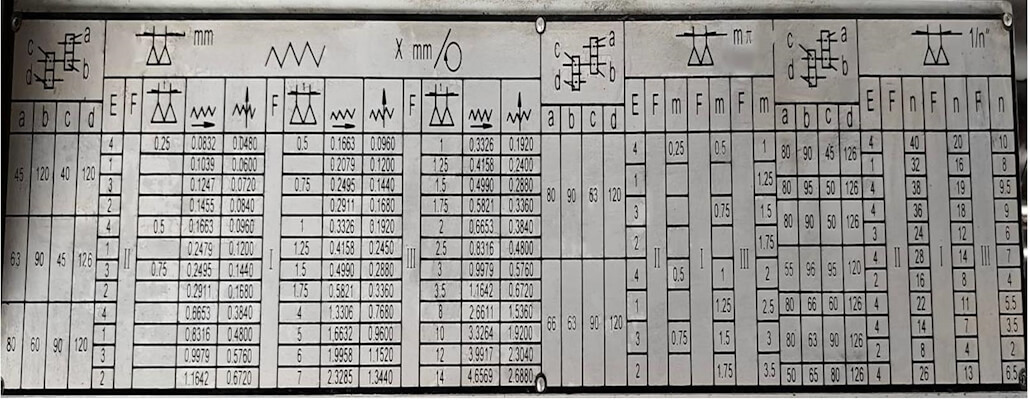 c a d b mm X mm/ c a d b mπ c a d b 1/n"
a b c d E F F F a b c d E F m F m F m a b c d E F n F n F n
45 120 40 120
63 90 45 126
80 60 90 120
II I III
4 0,25 0.0832 0.0480 0.5 0.1663 0.0960 1 0.3326 0.1920
1 0.1039 0.0600 0.2079 0.1200 1.25 0.4158 0.2400
3 0.1247 0.0720 0.75 0.2495 0.1440 1.5 0.4990 0.2880
2 0.1455 0.0840 0.2911 0.1680 1.75 0.5821 0.3360
4 0.5 0.1663 0.0960 1 0.3326 0.1920 2 0.6653 0.3840
1 0.2479 0.1200 1.25 0.4158 0.2450 2.5 0.8316 0.4800
3 0.75 0.2495 0.1440 1.5 0.4990 0.2880 3 0.9979 0.5760
2 0.2911 0.1680 1.75 0.5821 0.3360 3.5 1.1642 0.6720
4 0.6653 0.3840 4 1.3306 0.7680 8 2.6611 1.5360
1 0.8316 0.4800 5 1.6632 0.9600 10 3.3264 1.9200
3 0.9979 0.5760 6 1.9958 1.1520 12 3.9917 2.3040
2 1.1642 0.6720 7 2.3285 1.3440 14 4.6569 2.6880
80 90 63 120
66 63 90 120
II I III
4 0,25 0.5 1
1 1.25
3 0.75 1.5
2 1.75
4 0.5 1 2
1 1.25 2.5
3 0.75 1.5 3
2 1.75 3.5
II I III
80 90 45 126 4 40 20 10
1 32 16 8
80 95 50 126 4 38 19 9.5
80 90 50 126 4 36 18 9
3 24 12 6
55 96 95 120 4 28 14 7
2 16 8 4
80 66 60 126 4 22 11 5.5
80 63 90 126 4 14 7 3.5
2 8 4 2
50 65 80 126 4 26 13 6.5